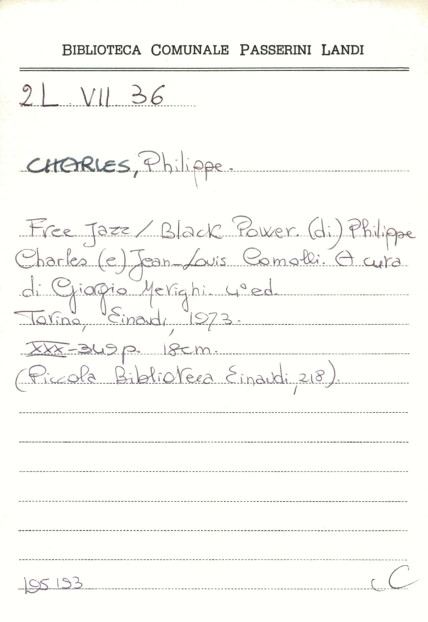 BIBLIOTECA COMUNALE PASSERINI LANDI
2L VII 36
CHARLES, Philippe.
Free Jazz / Black Power. (di) Philippe
Charles (e) Jean-Louis Comolli. A cura
di Giorgio Merighi. 4° ed.
Torino, Einaudi, 1973.
XXX-349 p. 18cm.
(Piccola Biblioteca Einaudi, 218).
195193
C